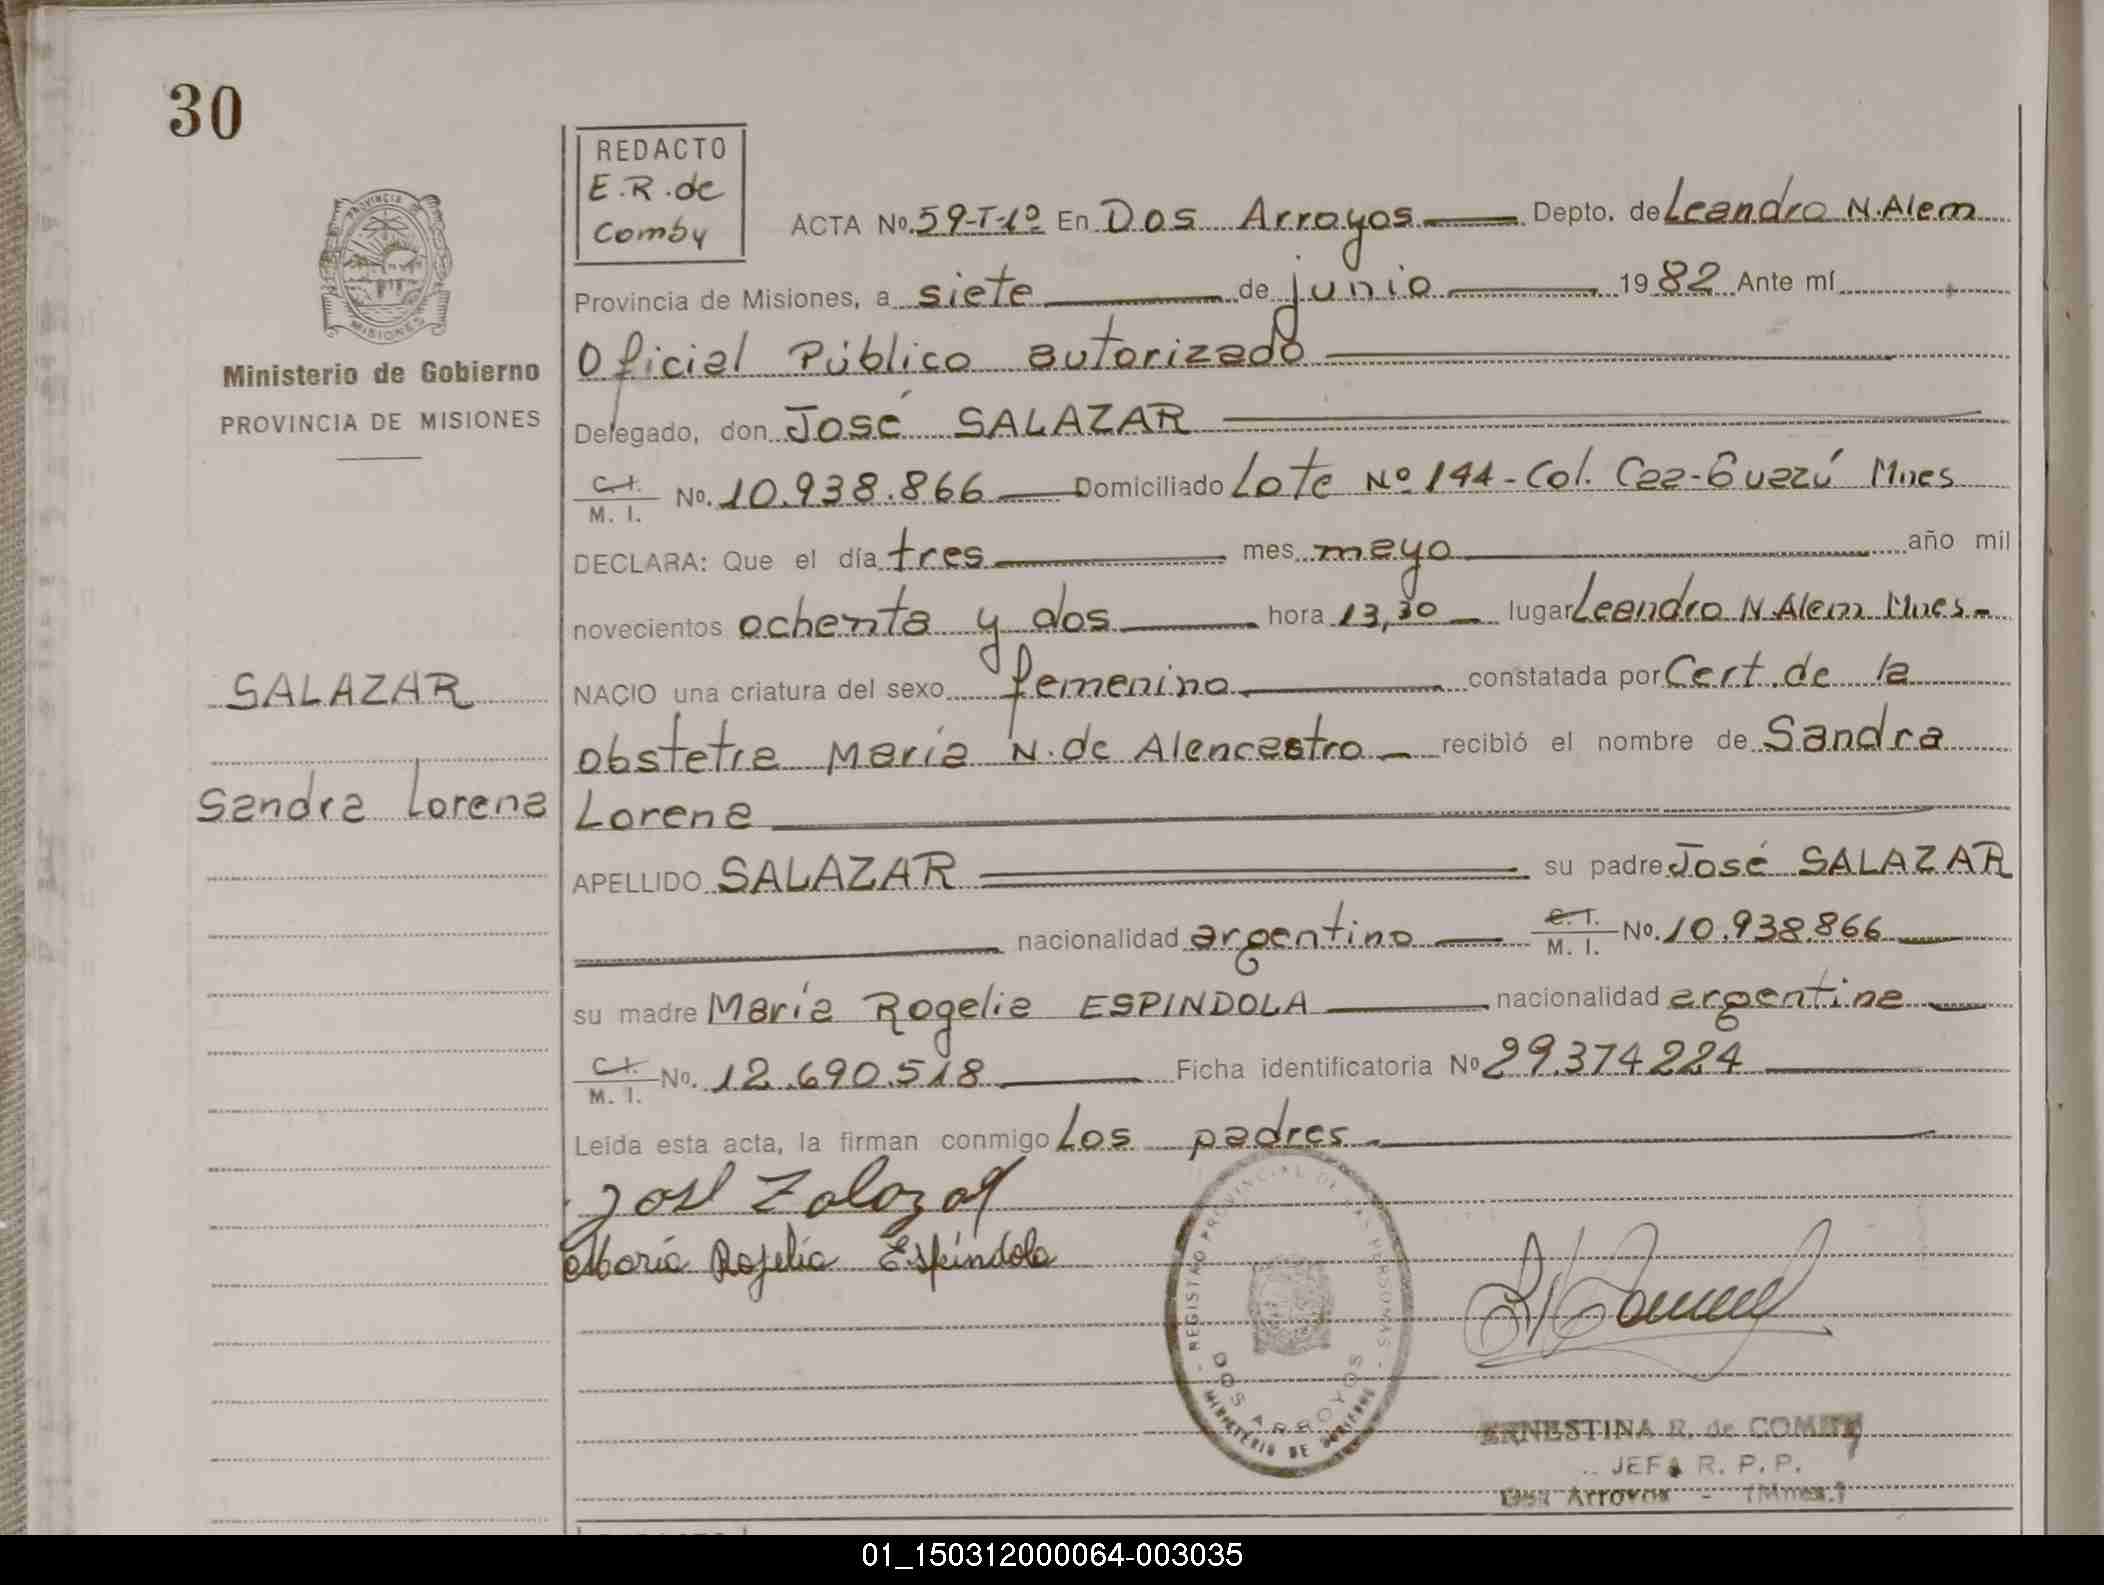 30
REDACTO
E.R. de
Comby
PROVINCIA DE
MISIONES
Ministerio de Gobierno
PROVINCIA DE MISIONES
ACTA Nº. 59-T-1º En Dos Arroyos Depto. de Leandro N. Alem
Provincia de Misiones, a siete de junio 1982 Ante mí
Oficial Público autorizado
Delegado, don José SALAZAR
C.I. / M. I. Nº. 10.938.866 Domiciliado Lote Nº 144-Col. Caa-Guazú Mnes
DECLARA: Que el día tres mes mayo año mil
novecientos ochenta y dos hora 13,30 lugar Leandro N. Alem Mnes.
SALAZAR
NACIO una criatura del sexo femenino constatada por Cert. de la
obstetra María N. de Alencastro recibió el nombre de Sandra
Sandra Lorena
Lorena
APELLIDO SALAZAR su padre José SALAZAR
nacionalidad argentino C. I. / M. I. Nº. 10.938.866
su madre María Rogelia ESPINDOLA nacionalidad argentina
C.I. / M. I. Nº. 12.690.518 Ficha identificatoria Nº 29.374.224
Leída esta acta, la firman conmigo Los padres
José Zalazar
María Rojelia Espíndola
- REGISTRO PROVINCIAL DE LAS PERSONAS -
DOS ARROYOS
MINISTERIO DE GOBIERNO
ERNESTINA R. de COMBY
JEFA R. P. P.
Dos Arroyos - (Mnes.)
01_150312000064-003035